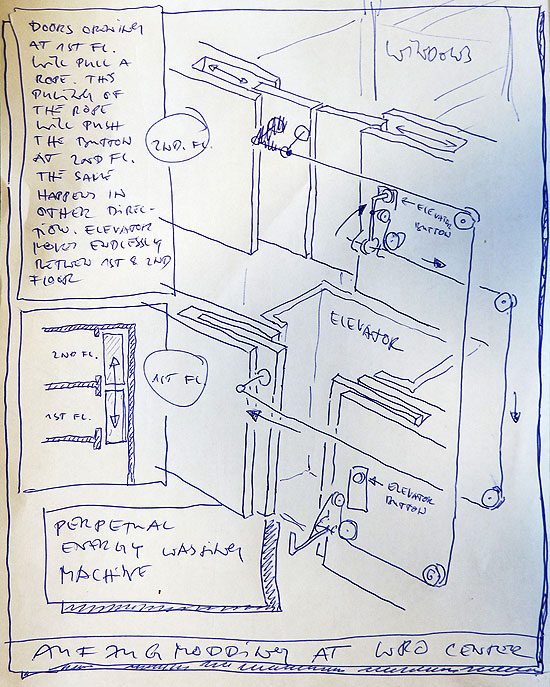 DOORS OPENING
AT 1ST FL.
WILL PULL A
ROPE. THIS
PULING OF
THE ROPE
WILL PUSH
THE BUTTON
AT 2ND FL.
THE SAME
HAPPENS IN
OTHER DIREC-
TION. ELEVATOR
MOVES ENDLESSLY
BETWEEN 1ST & 2ND
FLOOR
WINDOWS
2ND. FL.
ELEVATOR
BUTTON
ELEVATOR
2ND FL.
1ST FL.
1ST FL.
ELEVATOR
BUTTON
PERPETUAL
ENERGY WASTING
MACHINE
AUFZUG MODDING AT WRO CENTER